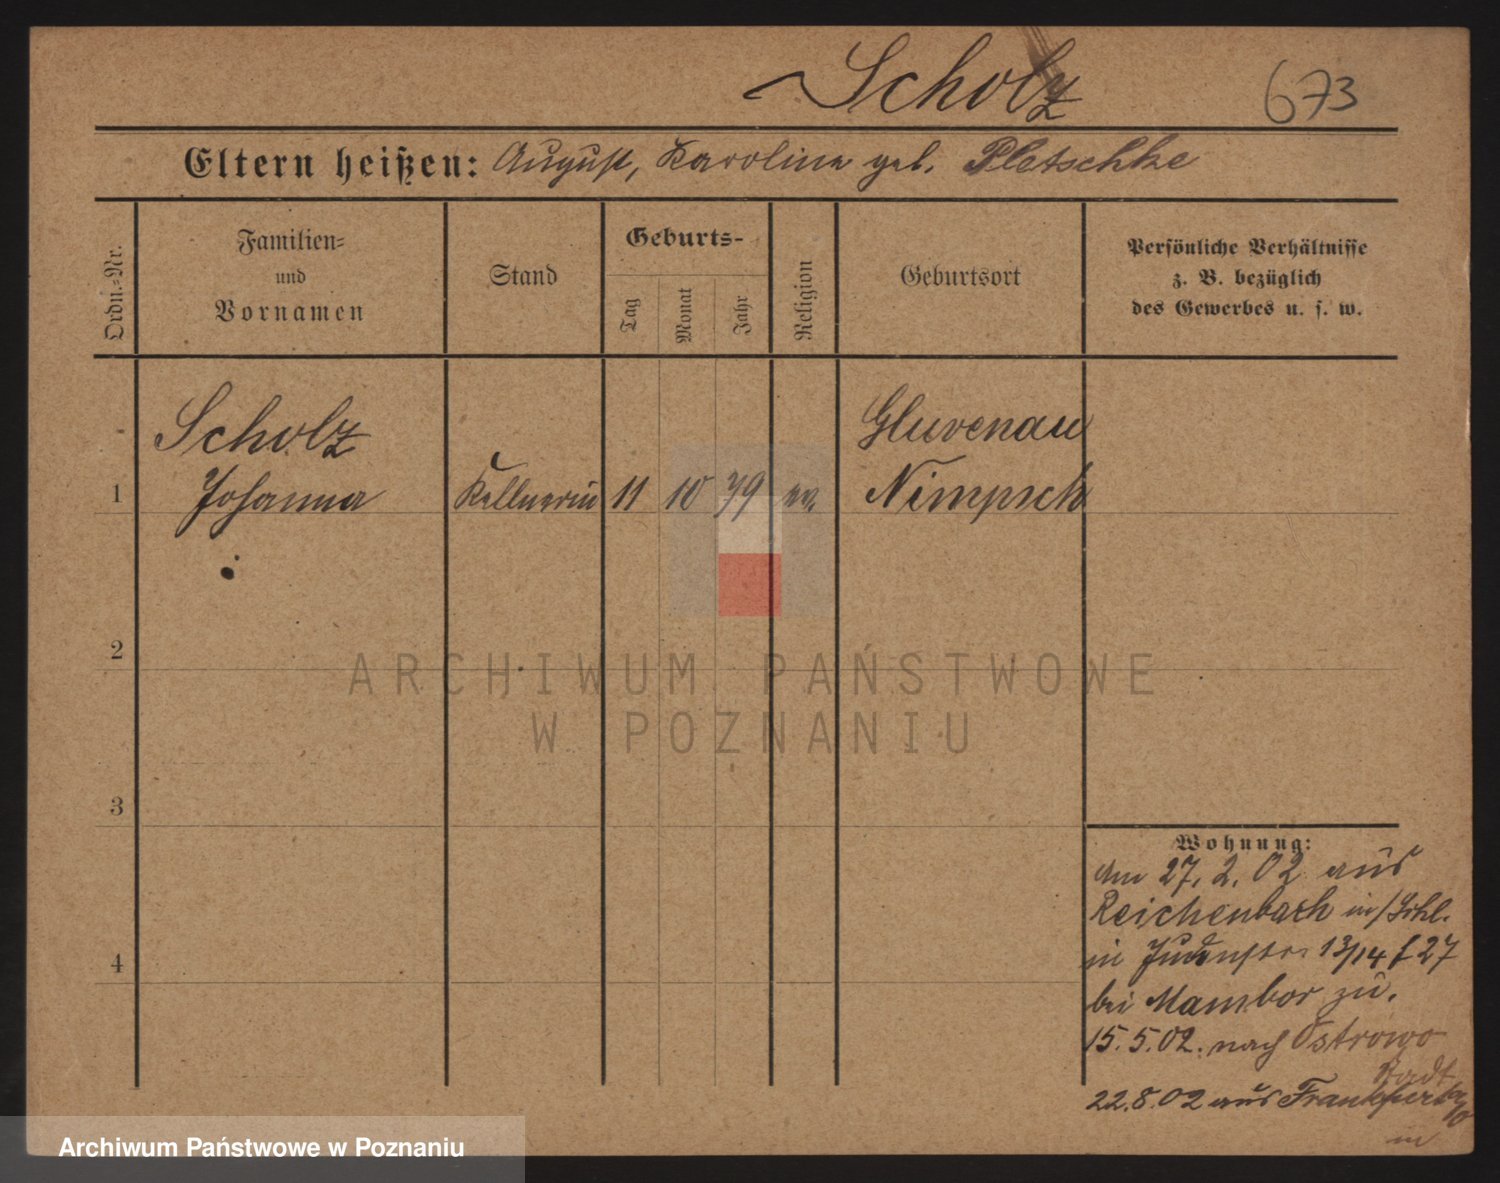 Scholz
673
Eltern heißen: August, Karoline geb. Pletschke
Ordn.-Nr.
Familien-
und
Vornamen
Stand
Geburts-
Tag
Monat
Jahr
Religion
Geburtsort
Persönliche Verhältnisse
z. B. bezüglich
des Gewerbes u. s. w.
Scholz
Gluvenau
1 Johanna Kellnerin 11 10 79 ev. Nimpsch
2
ARCHIWUM PAŃSTWOWE
W POZNANIU
3
Wohnung:
am 27. 2. 02 aus
Reichenbach in/Schl.
in Judenstr. 13/14 f 27
4
bei Mambor zu.
15. 5. 02. nach Ostrowo
Stadt
22. 8. 02 aus Frankfurt a/O
in
Archiwum Państwowe w Poznaniu